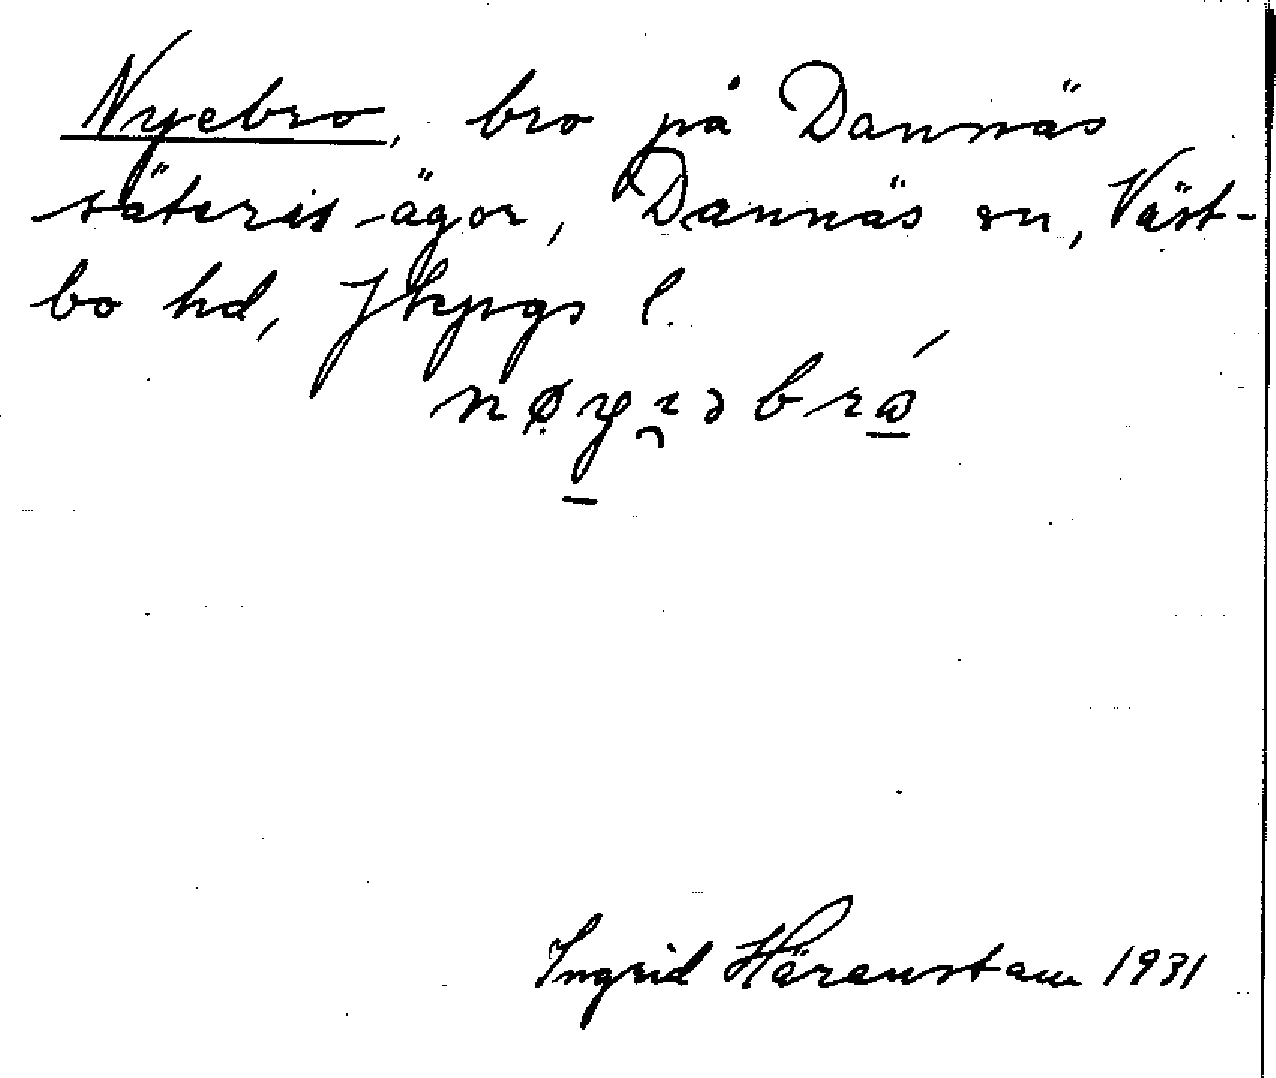 Nyebro, bro på Dannäs
säteris ägor, Dannäs sn, Väst-
bo hd, Jkpgs l.
Ingrid Härenstam 1931